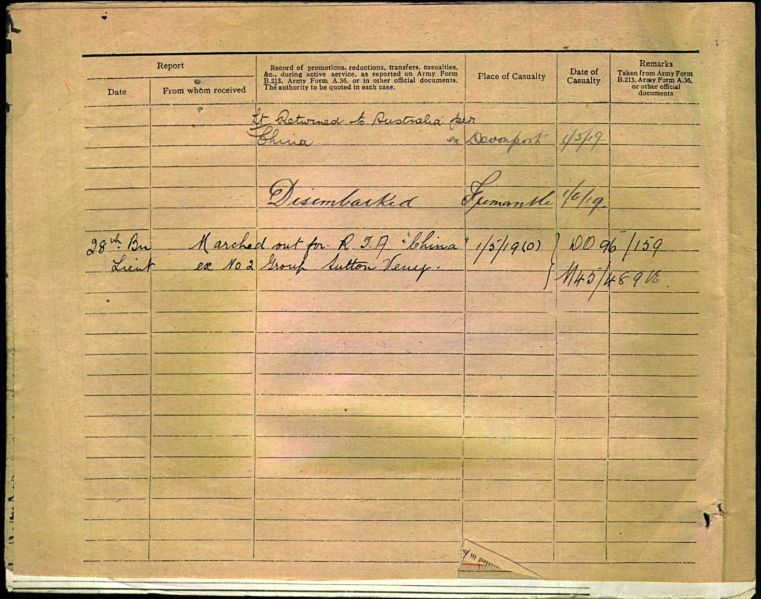 Report
Record of promotions, reductions, transfers, casualties,
&c., during active service, as reported on Army Form
B.213, Army Form A.36, or in other official documents.
The authority to be quoted in each case.
Place of Casualty
Date of
Casualty
Remarks
Taken from Army Form
B.213, Army Form A.36,
or other official
documents
Date
From whom received
Lt Returned to Australia per
China ex Devonport 1/5/19
Disembarked Fremantle 1/6/19
28th Bn Marched out for R.T.A. "China" 1/5/19(O) } DO 96/159
Lieut ex No 2 Group Sutton Veny. } M45/489